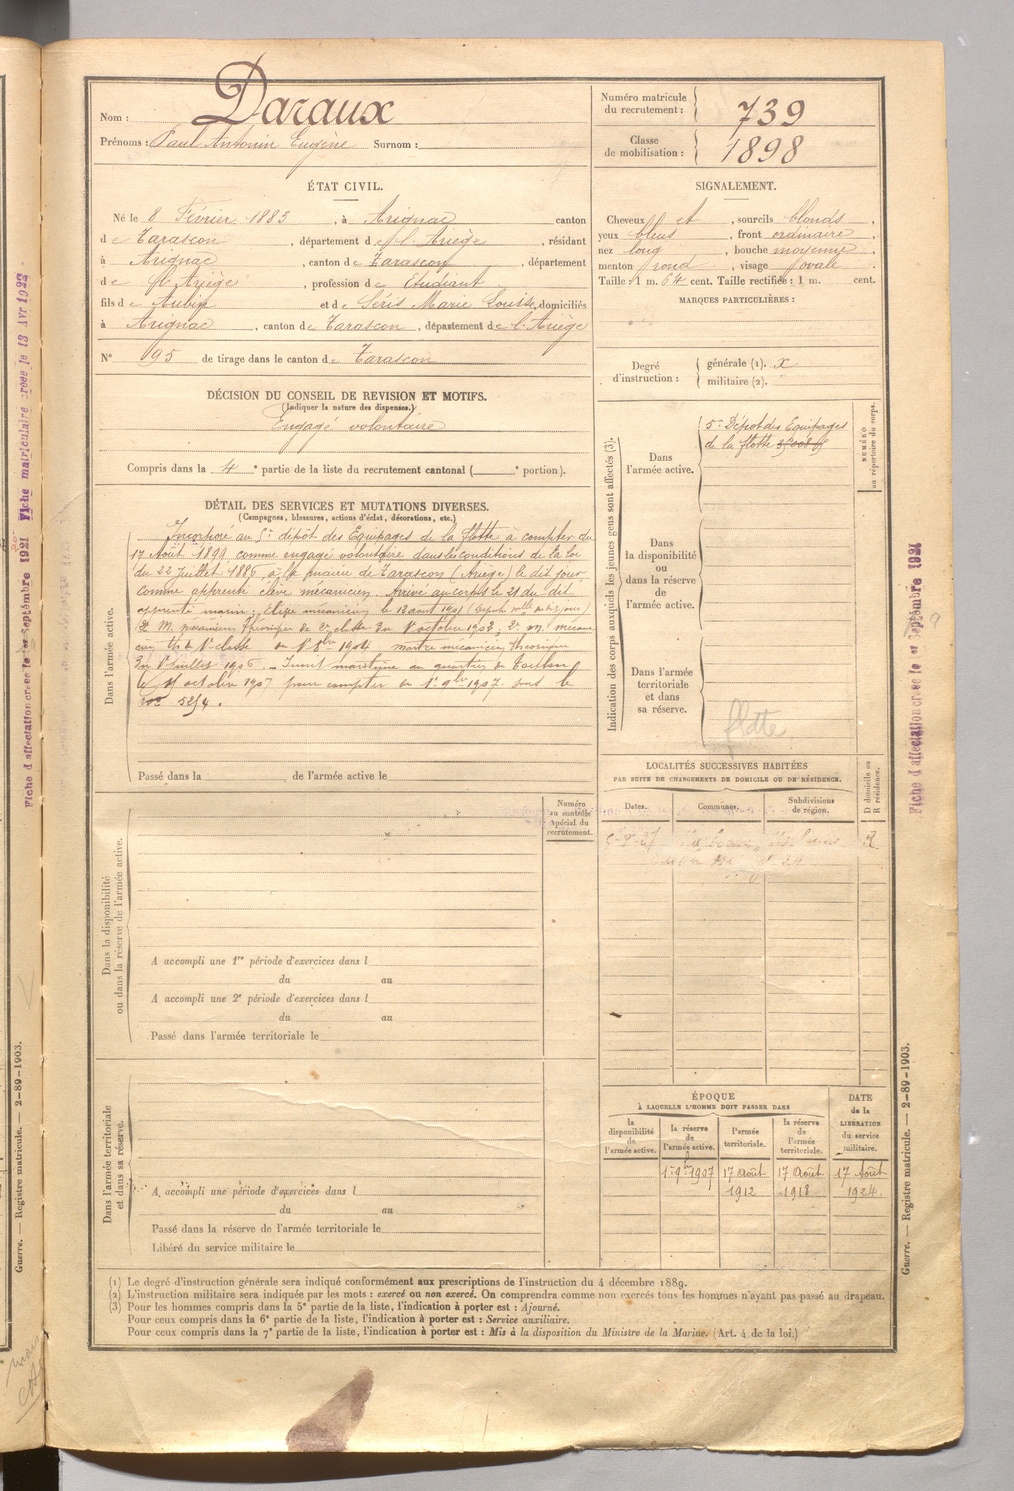 Nom : Daraux
Prénoms : Paul Antonin Eugène Surnom :
Numéro matricule du recrutement : 739
Classe de mobilisation : 1898
ÉTAT CIVIL.
Né le 8 Février 1883, à Arignac canton
de Tarascon, département de l'Ariège, résidant
à Arignac, canton de Tarascon, département
de l'Ariège, profession de Etudiant
fils de Aubin et de Séris Marie Louise, domiciliés
à Arignac, canton de Tarascon, département de l'Ariège
N° 95 de tirage dans le canton de Tarascon
SIGNALEMENT.
Cheveux et, sourcils blonds,
yeux bleus, front ordinaire,
nez long, bouche moyenne,
menton rond, visage ovale.
Taille : 1 m. 64 cent. Taille rectifiée : 1 m. cent.
MARQUES PARTICULIÈRES :
Degré d'instruction : générale (1). x
militaire (2).
DÉCISION DU CONSEIL DE REVISION ET MOTIFS.
(Indiquer la nature des dispenses.)
Engagé volontaire
Compris dans la 4e partie de la liste du recrutement cantonal ( e portion).
DÉTAIL DES SERVICES ET MUTATIONS DIVERSES.
(Campagnes, blessures, actions d'éclat, décorations, etc.)
Dans l'armée active.
Incorporé au 5e dépôt des Equipages de la flotte à compter du
17 Août 1899 comme engagé volontaire dans les conditions de la loi
du 22 Juillet 1886, à la mairie de Tarascon (Ariège) le dit jour,
comme apprenti élève mécanicien. Arrivé au corps le 21 du dit
apprenti marin; Elève mécanicien le 12 août 1901
2e M. mécanicien théorique de 2e classe du 1er octobre 1902; 2e m. mécani
cien th. de 1e classe du 1er 8bre 1904 maître mécanicien théorique
du 1er juillet 1906. Inscrit maritime au quartier de Toulon
le 4 octobre 1907 pour compter du 1er 9bre 1907 sous le
n° 5254.
Passé dans la de l'armée active le
Indication des corps auxquels les jeunes gens sont affectés (3).
NUMÉRO au répertoire du corps.
Dans l'armée active.
5e Dépôt des Equipages
de la flotte
Dans la disponibilité ou dans la réserve de l'armée active.
Dans l'armée territoriale et dans sa réserve.
flotte
LOCALITÉS SUCCESSIVES HABITÉES
PAR SUITE DE CHANGEMENTS DE DOMICILE OU DE RÉSIDENCE.
D domicile ou R résidence.
Dates. Communes. Subdivisions de région.
R
Dans la disponibilité ou dans la réserve de l'armée active.
Numéro au contrôle spécial du recrutement.
A accompli une 1re période d'exercices dans l
du au
A accompli une 2e période d'exercices dans l
du au
Passé dans l'armée territoriale le
Dans l'armée territoriale et dans sa réserve.
A accompli une période d'exercices dans l
du au
Passé dans la réserve de l'armée territoriale le
Libéré du service militaire le
ÉPOQUE
À LAQUELLE L'HOMME DOIT PASSER DANS
DATE de la LIBÉRATION du service militaire.
la disponibilité de l'armée active. la réserve de l'armée active. l'armée territoriale. la réserve de l'armée territoriale.
1er 9bre 1907 17 Août 1912 17 Août 1918 17 Août 1924
(1) Le degré d'instruction générale sera indiqué conformément aux prescriptions de l'instruction du 4 décembre 1889.
(2) L'instruction militaire sera indiquée par les mots : exercé ou non exercé. On comprendra comme non exercés tous les hommes n'ayant pas passé au drapeau.
(3) Pour les hommes compris dans la 5e partie de la liste, l'indication à porter est : Ajourné.
Pour ceux compris dans la 6e partie de la liste, l'indication à porter est : Service auxiliaire.
Pour ceux compris dans la 7e partie de la liste, l'indication à porter est : Mis à la disposition du Ministre de la Marine. (Art. 4 de la loi.)
Guerre. — Registre matricule. — 2-89-1903.
Fiche d'affectation créée le 1er Septembre 1921
Fiche matriculaire créée le 13 Avr 1922
Guerre. — Registre matricule. — 2-89-1903.
Fiche d'affectation créée le 1er Septembre 1921